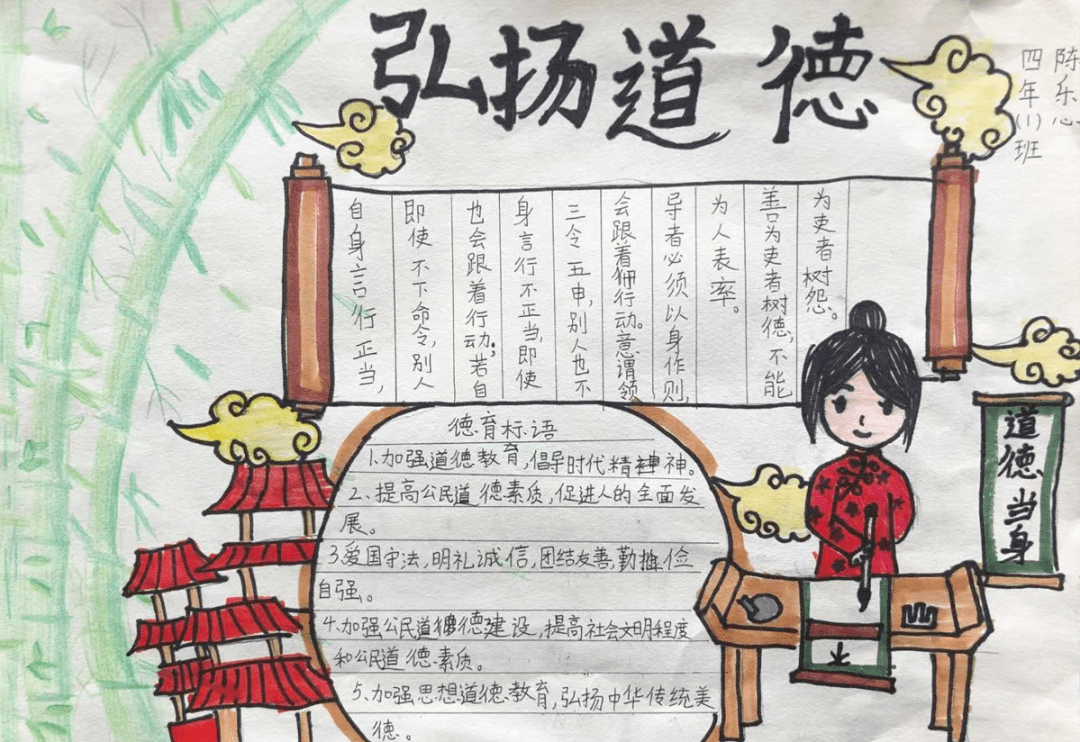 弘扬道德
陈乐心
四年(1)班
自身言行正当,
即使不下命令,别人
也会跟着行动;若自
身言行不正当,即使
三令五申,别人也不
会跟着行动。意谓领
导者必须以身作则,
为人表率。
善为吏者树德,不能
为吏者树怨。
德育标语
1.加强道德教育,倡导时代精神。
2、提高公民道德素质,促进人的全面发
展。
3.爱国守法,明礼诚信,团结友善,勤俭
自强。
4.加强公民道德建设,提高社会文明程度
和公民道德素质。
5、加强思想道德教育,弘扬中华传统美
德。
道德当身